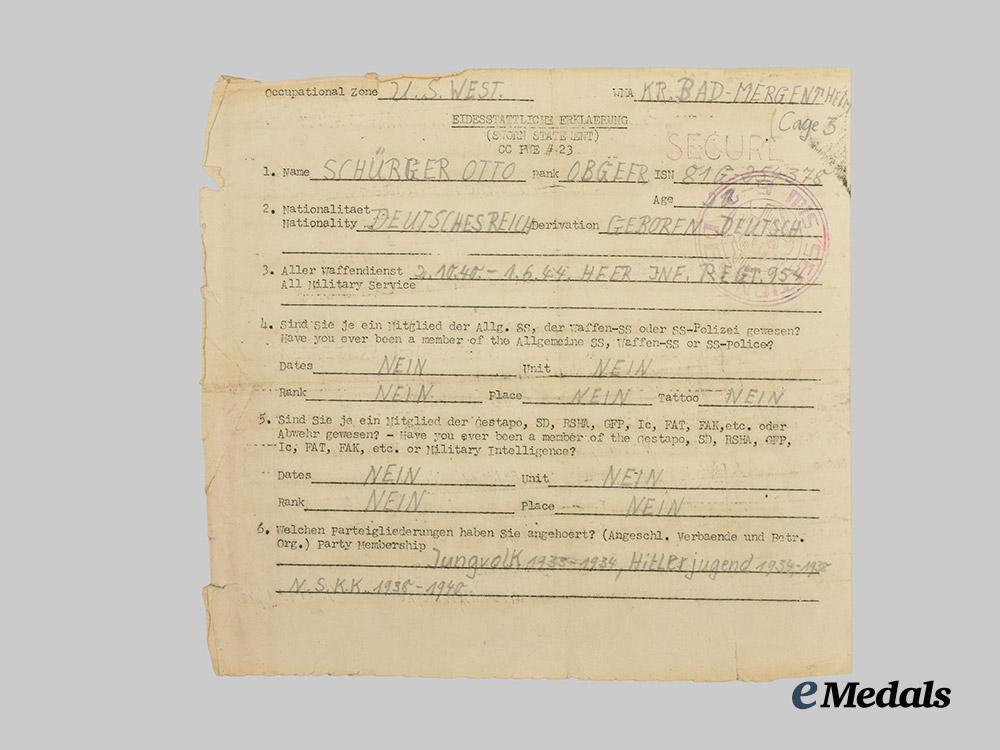 Occupational Zone U.S. WEST. WKA KR. BAD-MERGENTHEIM
EIDESSTATTLICHE ERKLAERUNG (Cage 3
(SWORN STATEMENT)
CC PWE # 23
SECURE
1. Name SCHÜRGER OTTO Rank OBGEFR ISN 81G-
Age 22
2. Nationalitaet
Nationality DEUTSCHESREICH Derivation GEBOREN DEUTSCH
3. Aller Waffendienst 2.10.40.- 1.6.44. HEER INF. REGT. 954
All Military Service
4. Sind Sie je ein Mitglied der Allg. SS, der Waffen-SS oder SS-Polizei gewesen?
Have you ever been a member of the Allgemeine SS, Waffen-SS or SS-Police?
Dates NEIN Unit NEIN
Rank NEIN Place NEIN Tattoo NEIN
5. Sind Sie je ein Mitglied der Gestapo, SD, RSHA, GFP, Ic, FAT, FAK,etc. oder
Abwehr gewesen? - Have you ever been a member of the Gestapo, SD, RSHA, GFP,
Ic, FAT, FAK, etc. or Military Intelligence?
Dates NEIN Unit NEIN
Rank NEIN Place NEIN
6. Welchen Parteigliederungen haben Sie angehoert? (Angeschl. Verbaende und Betr.
Org.) Party Membership
Jungvolk 1933-1934, Hitlerjugend 1934-1938
N.S.K.K. 1938-1940.
eMedals